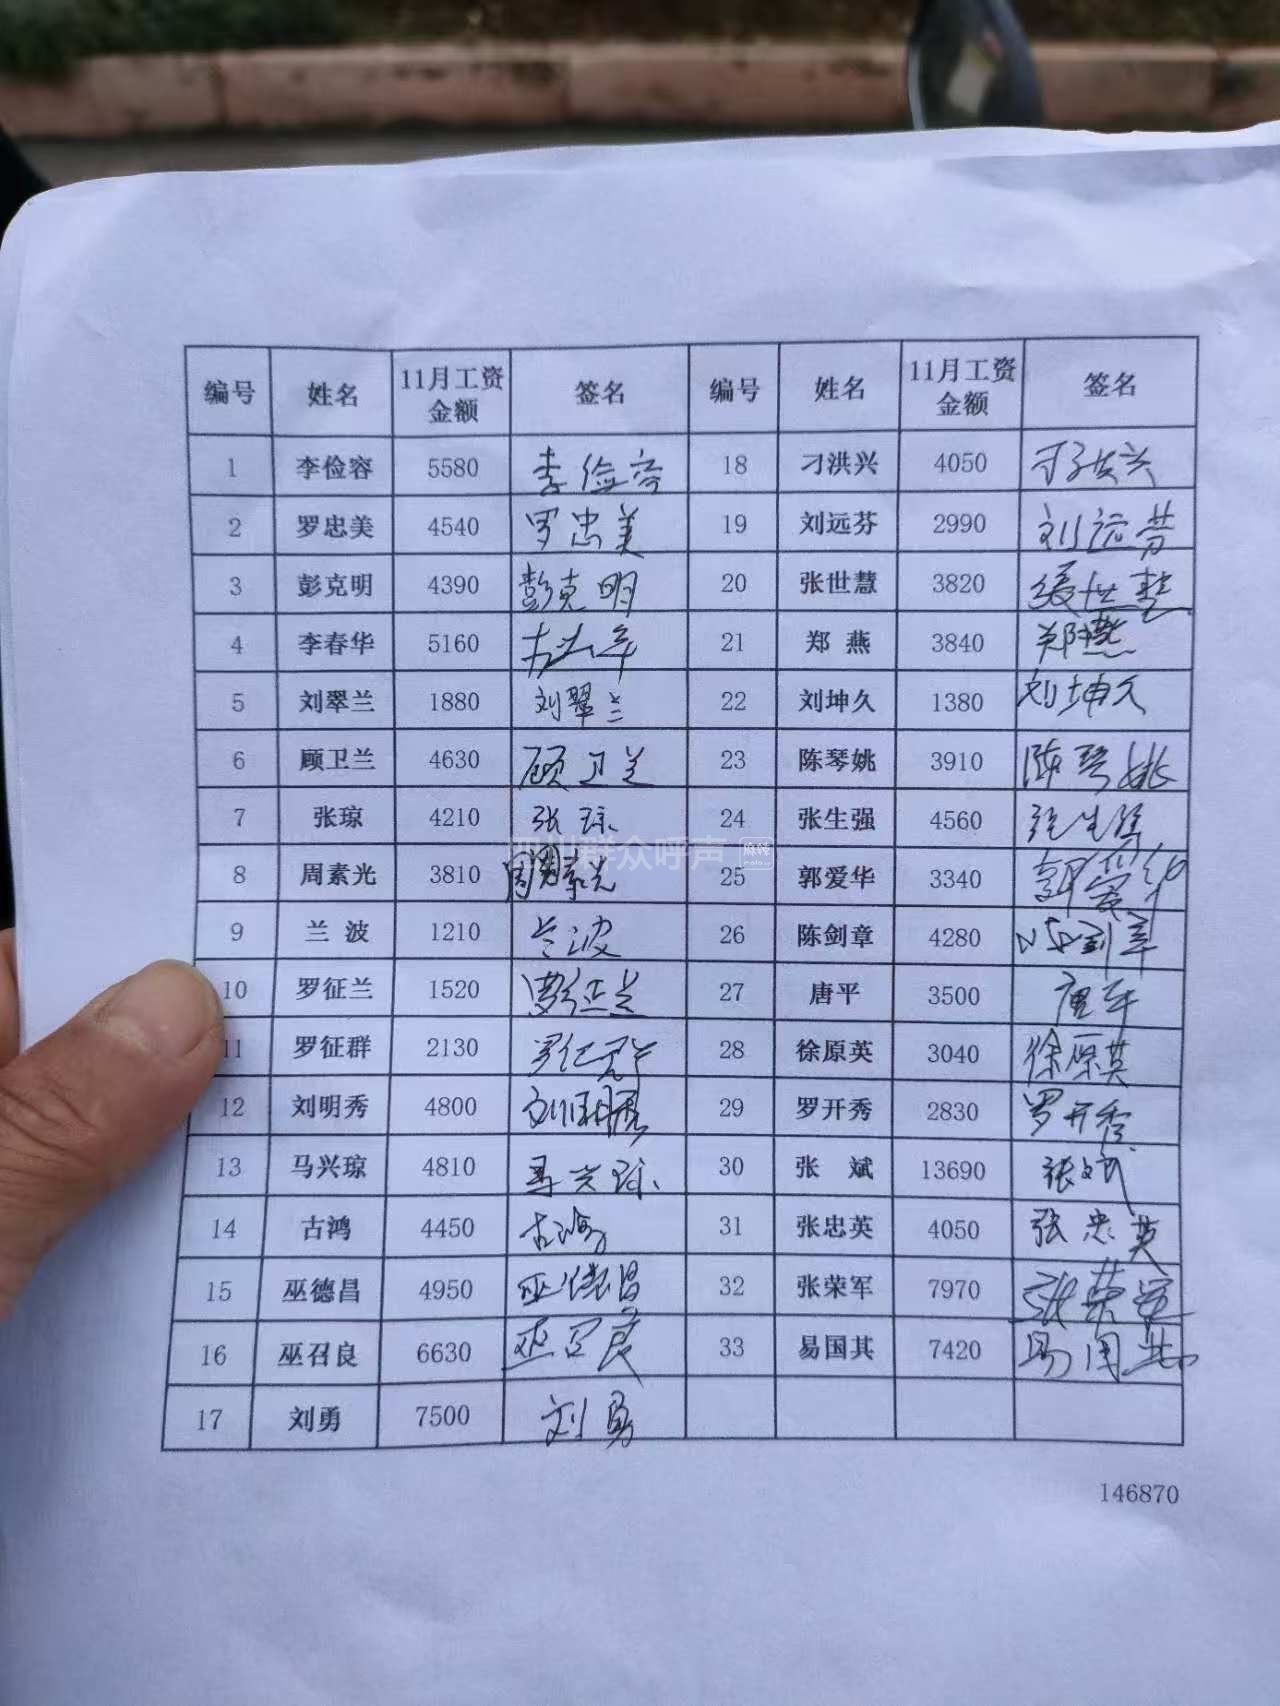 编号 姓名 11月工资金额 签名 编号 姓名 11月工资金额 签名
1 李俭容 5580 李俭容 18 刁洪兴 4050 刁洪兴
2 罗忠美 4540 罗忠美 19 刘远芬 2990 刘远芬
3 彭克明 4390 彭克明 20 张世慧 3820 张世慧
4 李春华 5160 21 郑燕 3840 郑燕
5 刘翠兰 1880 刘翠兰 22 刘坤久 1380 刘坤久
6 顾卫兰 4630 顾卫兰 23 陈琴姚 3910 陈琴姚
7 张琼 4210 张琼 24 张生强 4560 张生强
四川群众呼声 麻辣
8 周素光 3810 周素光 25 郭爱华 3340 郭爱华
9 兰波 1210 兰波 26 陈剑章 4280
10 罗征兰 1520 罗征兰 27 唐平 3500 唐平
11 罗征群 2130 28 徐原英 3040 徐原英
12 刘明秀 4800 29 罗开秀 2830 罗开秀
13 马兴琼 4810 马兴琼 30 张斌 13690 张斌
14 古鸿 4450 古鸿 31 张忠英 4050 张忠英
15 巫德昌 4950 巫德昌 32 张荣军 7970 张荣军
16 巫召良 6630 巫召良 33 易国其 7420 易国其
17 刘勇 7500 刘勇
146870